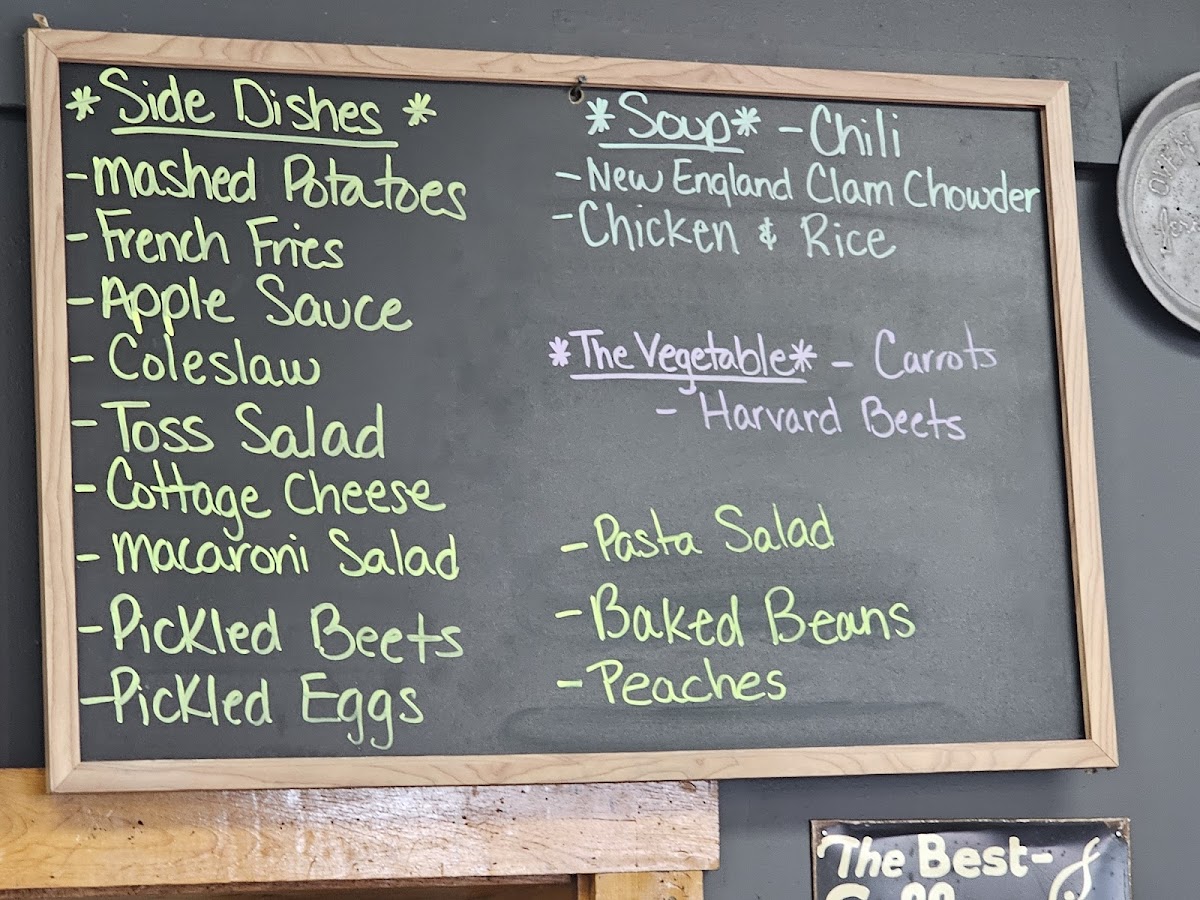 *Side Dishes*
-mashed Potatoes
-French Fries
-Apple Sauce
-Coleslaw
-Toss Salad
-Cottage Cheese
-macaroni Salad
-Pickled Beets
-Pickled Eggs
*Soup* -Chili
-New England Clam Chowder
-Chicken & Rice
*The Vegetable* - Carrots
- Harvard Beets
-Pasta Salad
-Baked Beans
-Peaches
The Best-